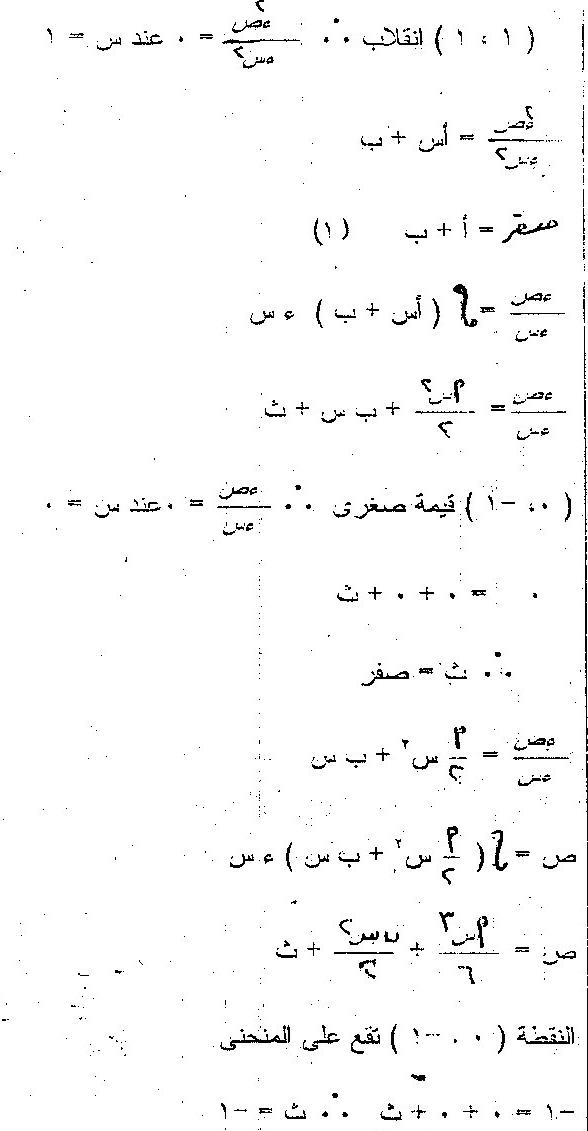 ( ١ ، ١ ) انقلاب ∴ ء٢ص/ءس٢ = ٠ عند س = ١
ء٢ص/ءس٢ = أس + ب
صفر = أ + ب (١)
ءص/ءس = ∫ ( أس + ب ) ء س
ءص/ءس = أس٢/٢ + ب س + ث
( ٠، -١ ) قيمة صغرى ∴ ءص/ءس = ٠ عند س = ٠
٠ = ٠ + ٠ + ث
∴ ث = صفر
ءص/ءس = أ/٢ س٢ + ب س
ص = ∫ ( أ/٢ س٢ + ب س ) ء س
ص = أس٣/٦ + ب س٢/٢ + ث
النقطة ( ٠ ، -١ ) تقع على المنحنى
-١ = ٠ + ٠ + ث ∴ ث = -١